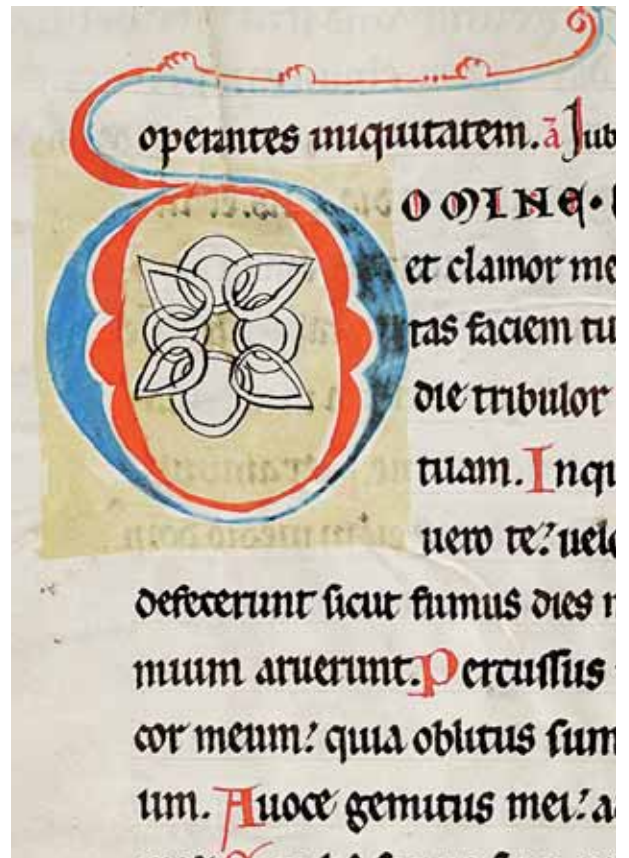 operantes iniquitatem. ā Jub
DOMINE.
et clamor me
tas faciem tu
die tribulor
tuam. Inqu
uero te: uelo
defecerunt sicut fumus dies
mium aruerunt. Percussus
cor meum: quia oblitus sum
um. Auoce gemitus mei: a